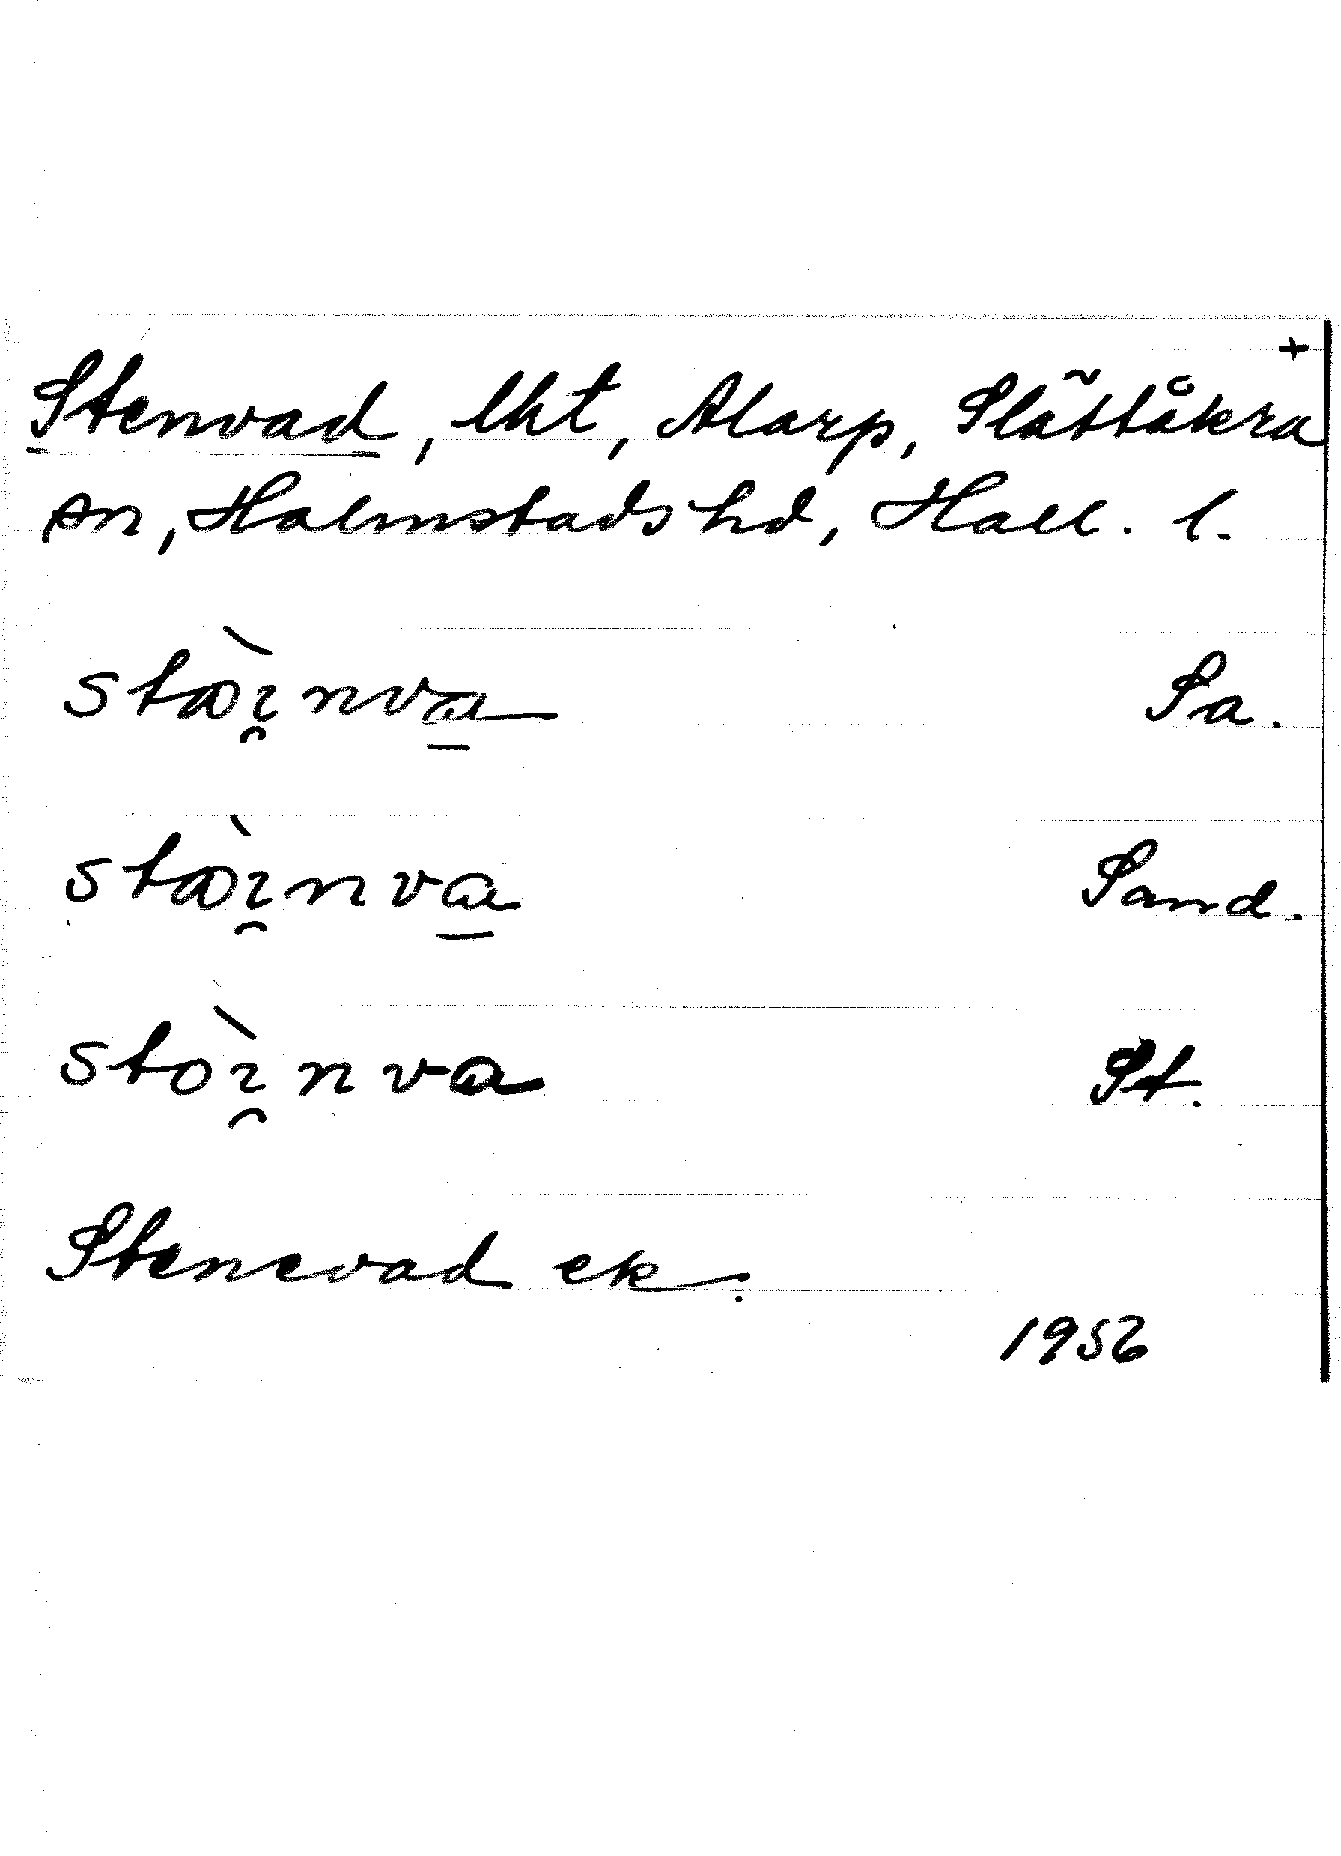 +
Stenvad, lht, Alarp, Slättåkra
sn, Halmstads hd, Hall. l.
Sa.
Sand.
St.
Stenevad ek.
1956